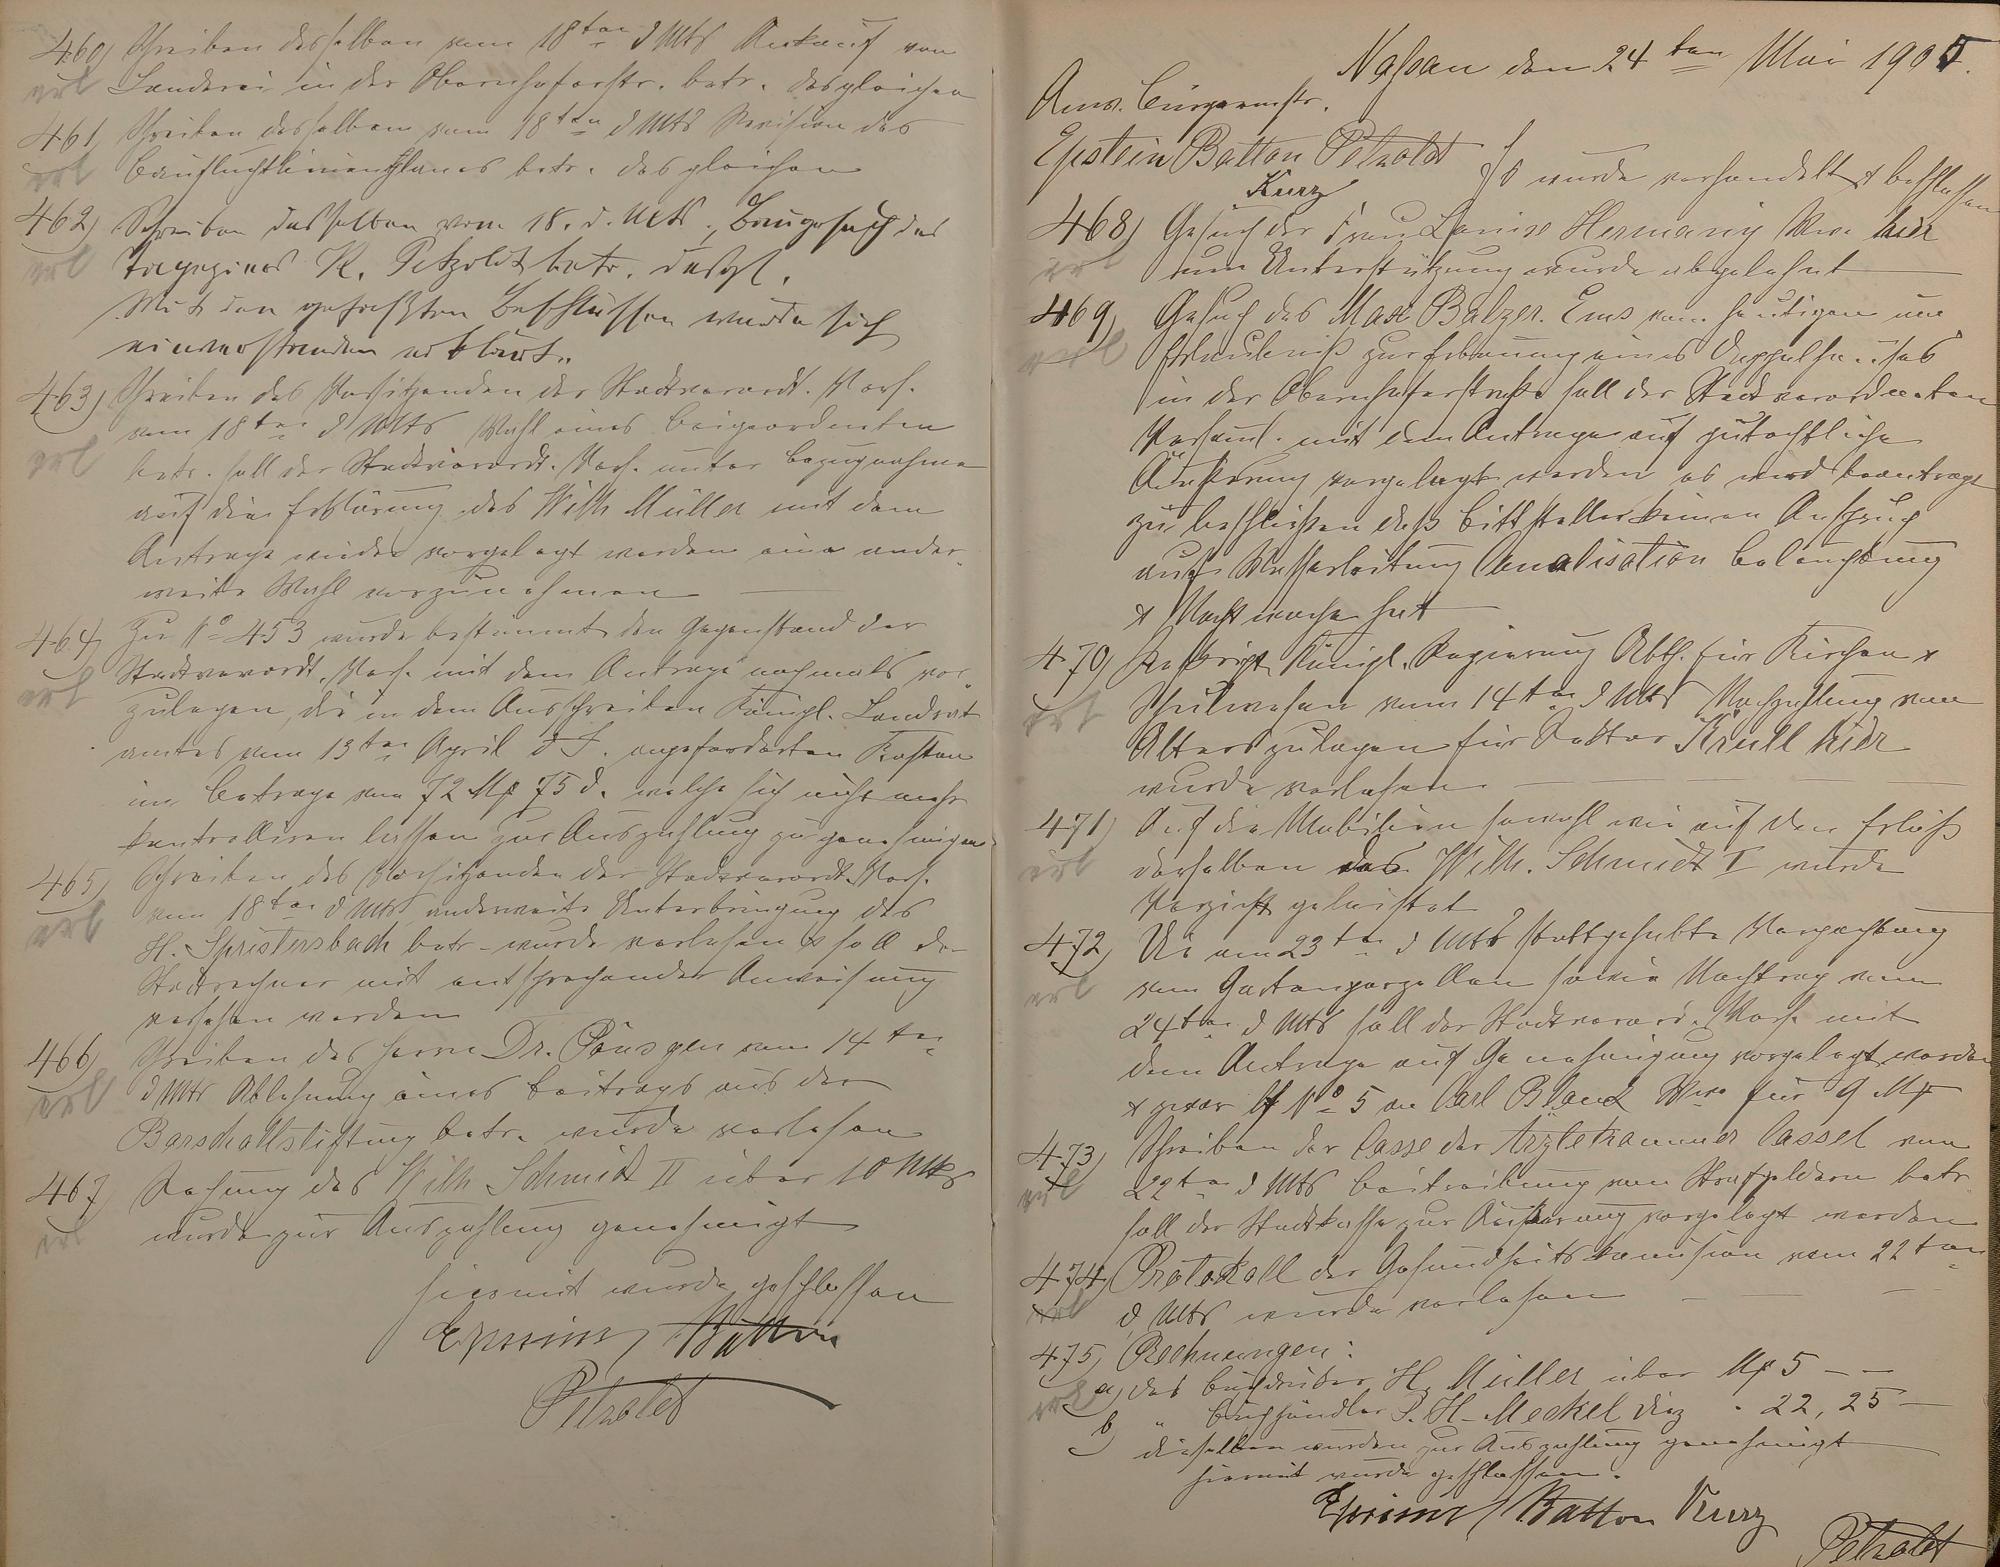 460) Schreiben desselben vom 18ten d Mts Ankauf von
erl Länderei in der Obernhoferstr. betr. desgleichen
461) Schreiben desselben vom 18ten d Mts Revision des
erl Baufluchtlinienplanes betr. desgleichen
462) Schreiben desselben vom 18. d. Mts., Baugesuch des
erl Tapezierers K. Petzoldt betr. desgl.
Mit den gefaßten Beschlüssen wurde sich
einverstanden erklärt.
463) Schreiben des Vorsitzenden der Stadtverordt. Vers.
vom 18ten d Mts Wahl eines Beigeordneten
erl betr. soll der Stadtverordt. Vers. unter Bezugnahme
auf die Erklärung des Wilh Müller mit dem
Antrage wieder vorgelegt werden eine ander-
weite Wahl vorzunehmen
464) Zu No 453 wurde bestimmt den Gegenstand der
erl Stadtverordt. Vers. mit dem Antrage nochmals vor-
zulegen, die in dem Ausschreiben Königl. Landrat
amtes vom 13ten April d J. angeforderten Kosten
im Betrage von 72 Mk 75 d. welche sich nicht mehr
kontrolliren lassen zur Auszahlung zu genehmigen
465) Schreiben des Vorsitzenden der Stadtverordt. Vers.
erl vom 18ten d Mts anderweite Unterbringung des
H. Spristersbach betr. wurde verlesen & soll de-
Stadtrechner mit entsprechender Anweisung
versehen werden
466) Schreiben des Herrn Dr. Pönsgen vom 14ten
erl d Mts Ablehnung eines Beitrags aus der
Barschallstiftung betr. wurde verlesen
467) Rechnung des Wilh Schmidt II über 10 Mk
erl wurde zur Auszahlung genehmigt
Hiermit wurde geschlossen
Epstein Batton
Petzoldt
Nassau den 24ten Mai 1905.
Anw. Bürgermstr.
Epstein Batton Petzoldt
Kurz
Es wurde verhandelt & beschlossen
468) Gesuch der Frau Louise Hermany Wwe hier
erl um Unterstützung wurde abgelehnt
469) Gesuch des Max Balzer. Ems vom heutigen um
erl Erlaubniß zur Erbauung eines Doppelhauses
in der Obernhoferstraße soll der Stadtverordneten
Versaml. mit dem Antrage auf gutachtliche
Äußerung vorgelegt werden es wird beantragt
zu beschließen daß Bittsteller keinen Anspruch
auf Wasserleitung Canalisation Beleuchtung
& Nachtwache hat
470) Verfügt. Königl. Regierung Abth. für Kirchen &
erl Schulwesen vom 14ten d Mts Nachzahlung von
Alterszulagen für Rektor Krull hier
wurde verlesen
471) Auf die Mobilien sowohl wie auf den Erlöß
erl derselben des Wilh. Schmidt I wurde
Verzicht geleistet
472) Die am 23ten d Mts stattgehabte Verpachtung
erl von Gartenparzellen sowie Nachtrag vom
24ten d Mts soll der Stadtverord. Vers. mit
dem Antrage auf Genehmigung vorgelegt werden
& zwar lf No 5 an Carl Blank Wwe für 9 Mk
473) Schreiben der Casse der Ärztekammer Cassel vom
erl 22ten d Mts Beitreibung von Strafgeldern betr
soll der Stadtkasse zur Äußerung vorgelegt werden
474) Protokoll der Gesundheitskomision vom 22ten
erl d Mts wurde verlesen
475) Rechnungen:
erl a) des Buchdruker H. Müller über Mk 5 - -
b) " Buchhändler P. H. Meckel Diez " 22,25
dieselben wurden zur Auszahlung genehmigt
hiermit wurde geschlossen.
Epstein Batton Kurz
Petzoldt